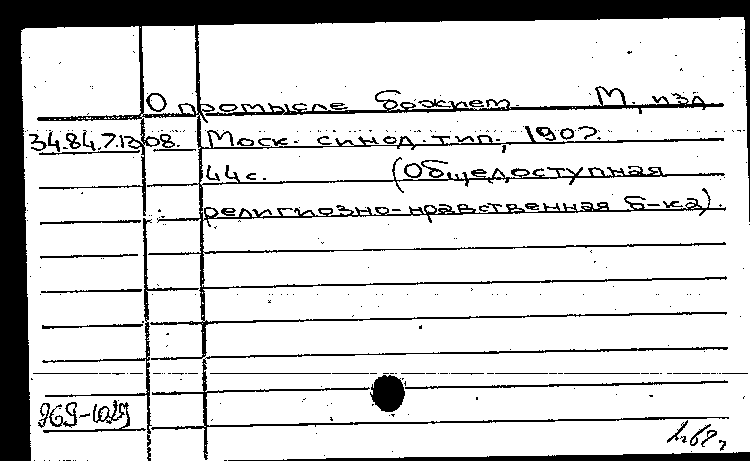 О промысле божием. М, изд.
34.84.7.13 08. Моск. синод. тип., 1907.
44 с. (Общедоступная
религиозно-нравственная б-ка).